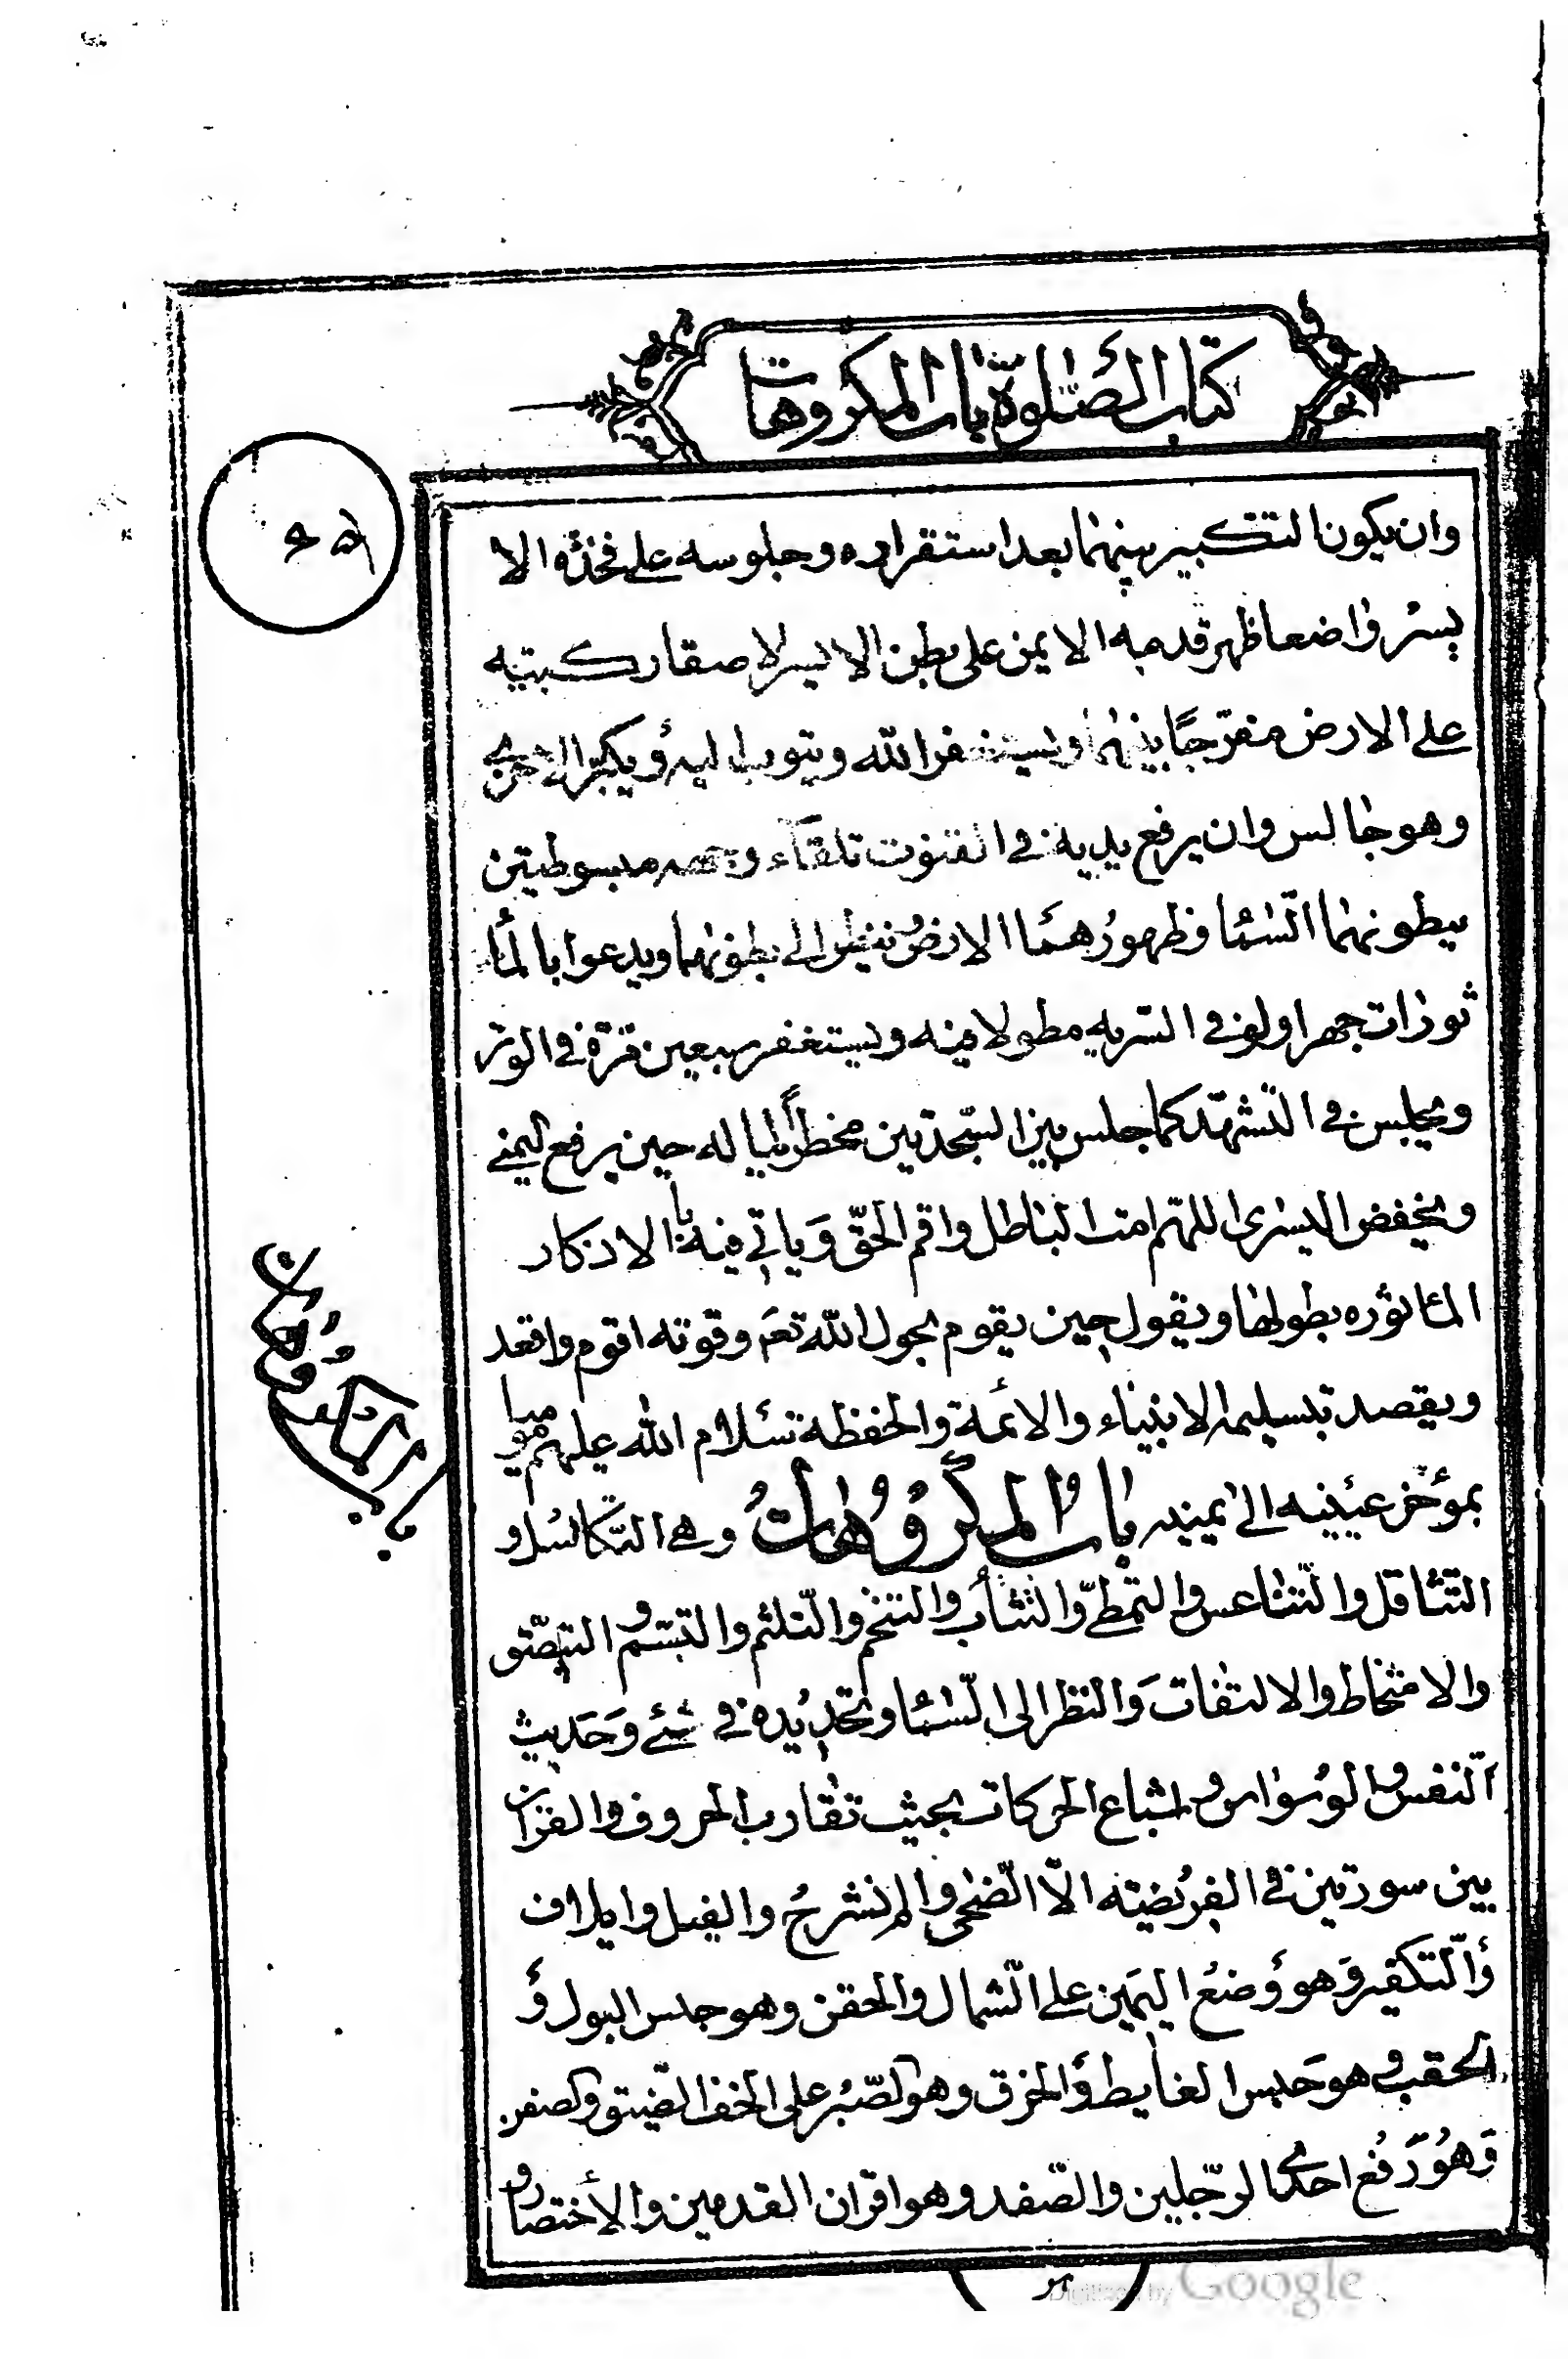 كتاب الصّلوة باب المكروهات
وان يكون التكبير بينهما بعد استقراره وجلوسه على فخذه الا
يسر واضعا ظهر قدمه الايمن على بطن الايسر لاصقا ركبتيه
على الارض منفرّجًا بينهما ويستغفر الله ويتوب اليه ويكبّر الاخرى
وهو جالس وان يرفع يديه في القنوت تلقاء وجهه مبسوطتين
ببطونهما السّما وظهورهما الارض ينظر الى بطونهما ويدعوا بالمأ
ثورات جهرا ولو في السريه مطولا فيه ويستغفر سبعين مرّة في الوتر
ويجلس في التشهّد كما جلس بين السّجدتين مخطراً بباله حين يرفع اليمنى
ويخفض اليسرى اللهم امت الباطل واقم الحقّ وياتي فيه با الاذكار
المأثوره بطولها ويقول حين يقوم بحول الله تعم وقوته اقوم واقعد
ويقصد بتسليمه الانبياء والائمة والحفظة سلام الله عليهم موميا
بمؤخر عينيه الى يمينه باب المكروهات وهي التكاسل و
التثاقل والتناعس والتمطّي والتثأب والتنخم والتلثم والتبسّم و التبصّق
والامتخاط والالتفات والنظر الى السّما وتحديده في شئ وحديث
النفس والوسواس واشباع الحركات بحيث تقارب الحروف والقران
بين سورتين في الفريضته الاّ الضّحى والم نشرح والفيل وايلاف
والتكفير وهو وضع اليمين على الشمال والحقن وهو حبس البول و
الحقب وهو حبس الغايط والحزق وهو الصّبر على الخف الضّيق والصفن
وهو رفع احدى الرّجلين والصّفد وهو اقران القدمين والاختصار
باب المكروهات